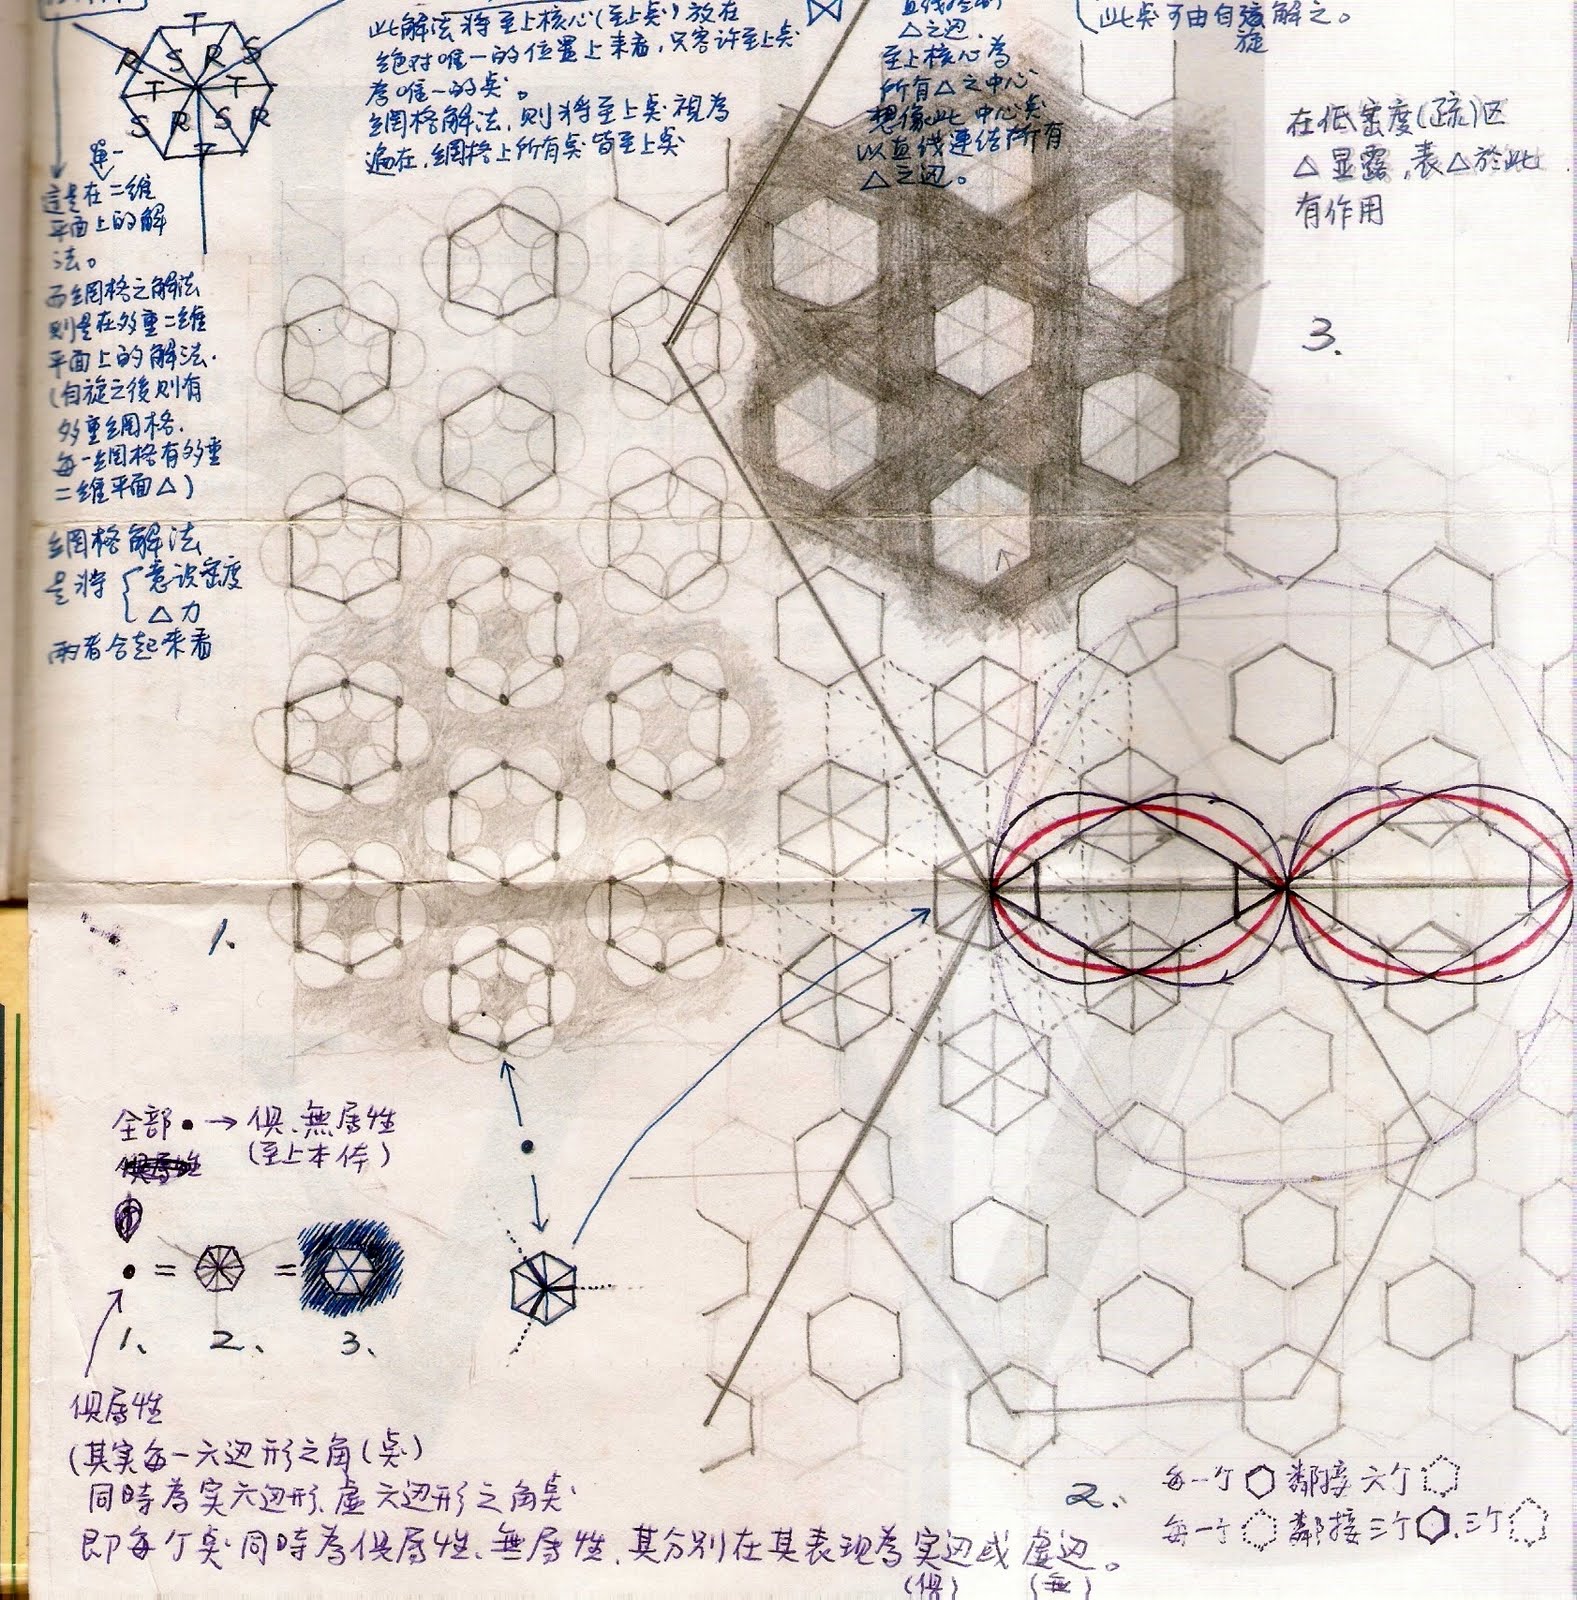 T
R S R S
T T
S R S R
T
單一
這是在二维
平面上的解
法。
而網格之解法
則是在多重二维
平面上的解法.
(自旋之後則有
多重網格.
每一網格有多重
二维平面△)
網格解法
是将{意识密度
△力
兩者合起来看
此解法将至上核心(至上奌)放在
绝对唯一的位置上来看,只容许至上奌
為唯一的奌。
網格解法,則将至上奌視為
遍在.網格上所有奌皆至上奌
△之边.
至上核心為
所有△之中心
想像此中心奌
以直线連结所有
△之边。
(此奌可由自旋解之。
在低密度(疏)区
△显露,表△於此
有作用
3.
1.
全部•→俱、無屬性
(至上本体)
• = =
1、 2、 3、
俱屬性
(其实每一六边形之角(奌)
同時為实六边形、虚六边形之角奌
即每个奌同時為俱屬性、無屬性,其分别在其表现為实边或虚边。
(俱) (無)
2、
每一个⬡鄰接六个⬡
每一个⬡鄰接三个⬡.三个⬡